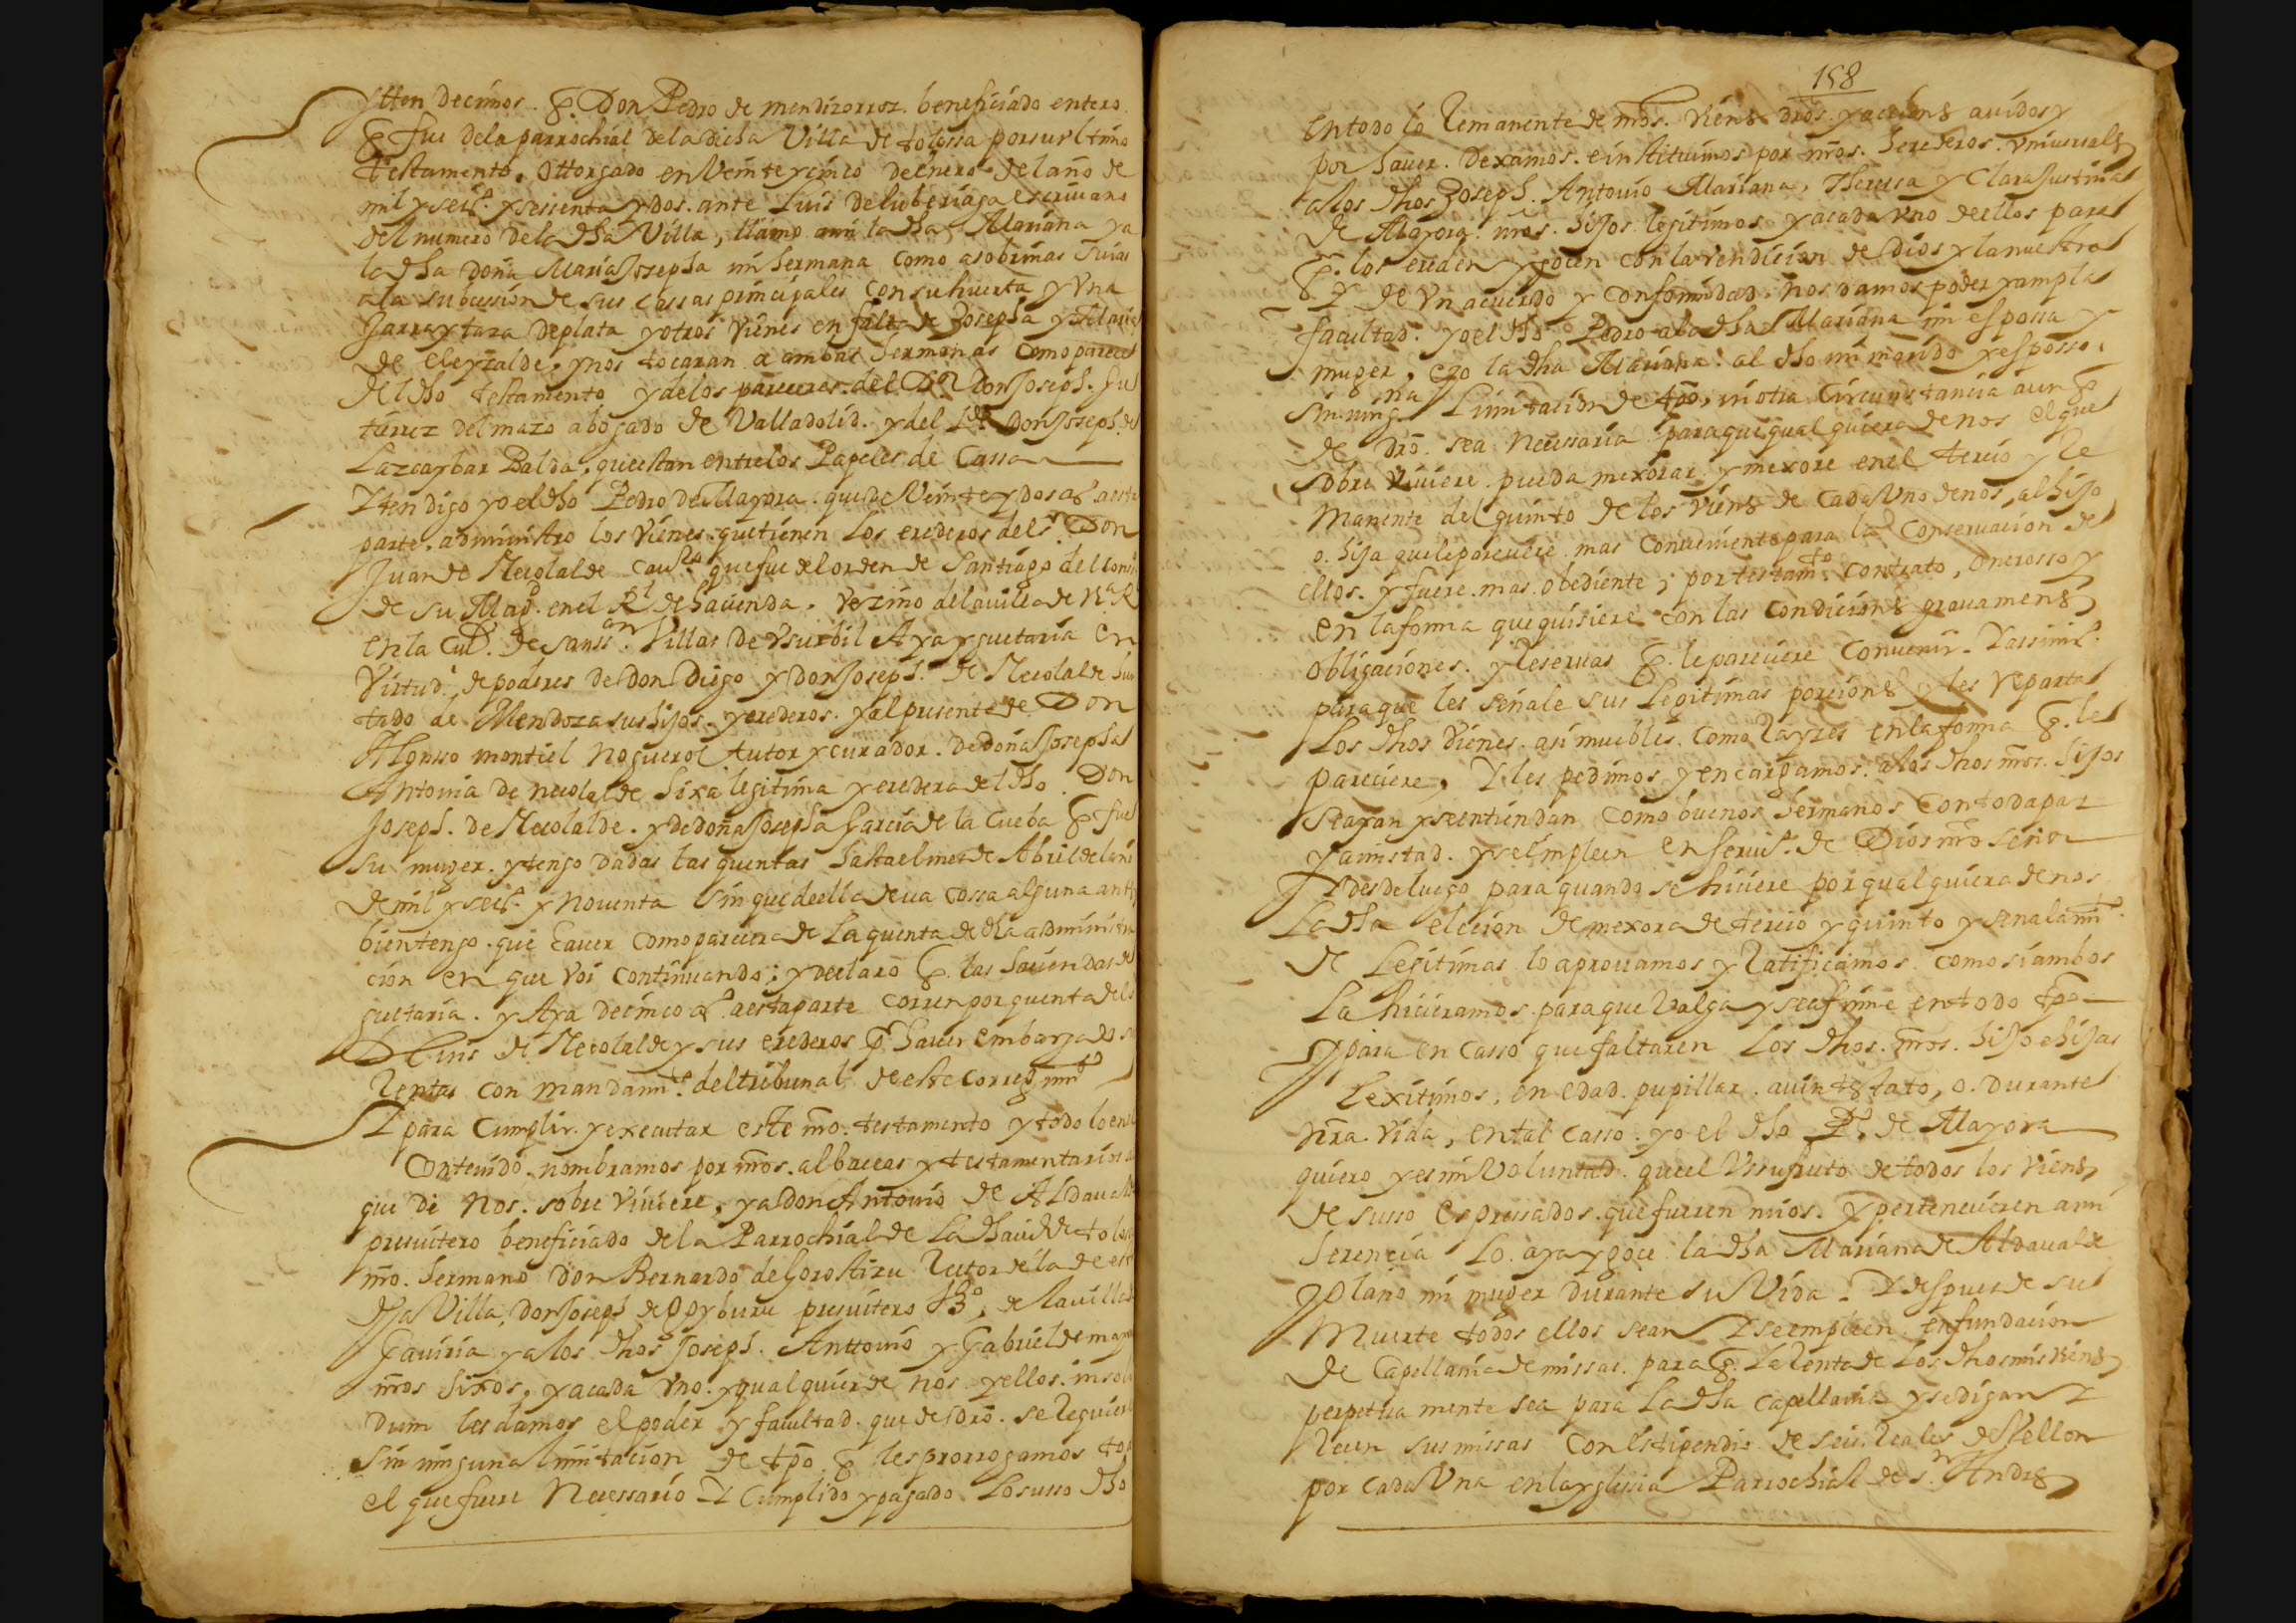 Ytten decimos. q. Don Pedro de mendizorroz. beneficiado entero.
q. fue dela parrochial dela dicha Villa de tolossa por su vltimo
testamento. Ottorgado en Veinte y cinco de enero. de lano de
mil y seisº. y sessenta y dos. ante Luis de luberiaga escriuano
del numero de la dha Villa, llamo a mi la dha Mariana ya
la dha doña Maria Josepha mi hermana como a sobrinas suias
ala subcession de sus cassas principales con su huerta y Vna
Jarra y taza de plata y otros vienes en falta de Josepha y Maria
de Eleyzalde. y nos tocaran a ambas hermanas como parece
del dho testamento y de los pareceres. del Dor. Don Joseph. Gu
tierrez del mazo abogado de Valladolid. y del Ldo. Don Joseph. de
Lazcaybar Balda, que estan entre los Papeles de Cassa
Yten digo yo el dho Pedro de Mayora. que de Veinte y dos as. a esta
parte. administro los vienes. que tienen los erederos del sr. Don
Juan de Necolalde cauº. que fue del orden de Santiago del cons
de su Magd. en el Rl. de hacienda. Vezino de la villa de Va. Ra
en la Ciud. de sanssan. Villas de Vsurbil Aya y guetaria en
Virtud. de poderes de don Diego y don Joseph. de Necolalde hur
tado de Mendoza sus hijos. y erederos. y al presente de Don
Alonsso montiel Noguerol tutor y curador. de doña Josepha
Antonia de necolalde hixa legitima y eredera del dho. Don
Joseph. de Necolalde. y de doña Josepha Garcia de la Cueba q. fue
su muger. y tengo dadas las quentas hasta el mes de Abril de lano
de mil y seisº. y nouenta sin que de ella deua cossa alguna antes
bien tengo. que hauer como parecera de La quenta de dha administra
cion en que voi continuando; y declaro q. las haciendas de
guetaria. y Aya de cinco as. a esta parte corren por quenta de
Luis de Necolalde y sus erederos q. hauer embargado s
Rentas con mandamto. del tribunal de este corregimto
Y para cumplir. y executar este nro. testamento y todo lo en el
Contenido. nombramos por nros. albaceas y testamentarios al
que de nos. sobre viuiere, ya don Antonio de Aldaualde
presuitero beneficiado de la Parrochial de La dha uilla de tolossa
nro. hermano Don Bernardo de Gorostizu Rector de la de esta
dha Villa, don Joseph de Goyburu presuitero de la uilla de
Gauiria ya los dhos Joseph. Anttonio y Gabriel de mayora
nros hixos, ya cada vno. y qual quier de nos y ellos. in soli
dum les damos el poder y facultad. que de dro. se Requiere
Sin ninguna limitacion de tpo q. les prorrogamos todo
el que fuere Necessario Y Cumplido y pagado Lo susso dho
158
en todo lo Remanente de nros. vienes dros. y actiones auidos y
por hauer. Dexamos. e instituimos por nros. herederos. vniuersales
a los dhos Joseph. Antonio Mariana, Theressa y Clara Justina
de Mayora. nros. hijos. legitimos ya cada vno de ellos para
q. los ereden y gocen con la vendicion de Dios y la nuestra
Y de vn acuerdo y conformidad. nos damos poder y ampla
facultad. yo el dho Pedro a la dha Mariana mi espossa y
muger, e yo la dha Mariana. al dho mi marido y esposso.
sin ningna Limitacion de tpo, ni otra circunstancia aun q.
de Dro. sea Necessaria para que qual quiera de nos el que
sobre viuiere. pueda mexorar y mexore en el tercio y Re
manente del quinto de los vienes de cada Vno de nos, al hijo
o. hija que le pareciere. mas conueniente para la conseruacion de
ellos. y fuere. mas. obediente; por testamto. contrato, onerosso y
en la forma que quisiere. con las condiciones grauamenes
obligaciones. y Reseruas q. le pareciere conuenir. Y assimis.
para que les señale sus legitimas porciones y les Reparta
Los dhos vienes. asi muebles. como Rayzes en la forma q. le
pareciere, Y les pedimos y encargamos. a los dhos nros. hijos
se ayan y se entiendan como buenos hermanos con toda paz
y amistad. y se empleen en seruiº. de Dios nro señor
Y desde luego para quando se hiciere por qual quiera de nos
La dha elecion de mexora de tercio y quinto y señalamto.
de Legitimas lo aprouamos y Ratificamos. como si ambos
La hicieramos. para que Valga y sea firme en todo tpo
Y para en casso que faltaren Los dhos. nros. hijo e hijas
lexitimos, en edad. pupillar. auintestato, o. durante
nra. vida, en tal casso. yo el dho Po. de Mayora
quiero y es mi Voluntad. que el Vsufruto de todos los vienes
de susso espressados. que fueren mios. y pertenecieren a mi
herencia Lo. aya y goce. la dha Mariana de Aldaualde
Yolano mi muger durante su Vida. Y despues de su
Muerte todos ellos sean Y se empleen en fundacion
de Capellania de missas. para q. La Renta de Los dhos mis vienes
perpetua mente sea para La dha capellania y se digan Y
Recen sus missas con estipendio de seis Reales de Vellon
por cada Vna en la yglesia Parrochial de sn. Andres